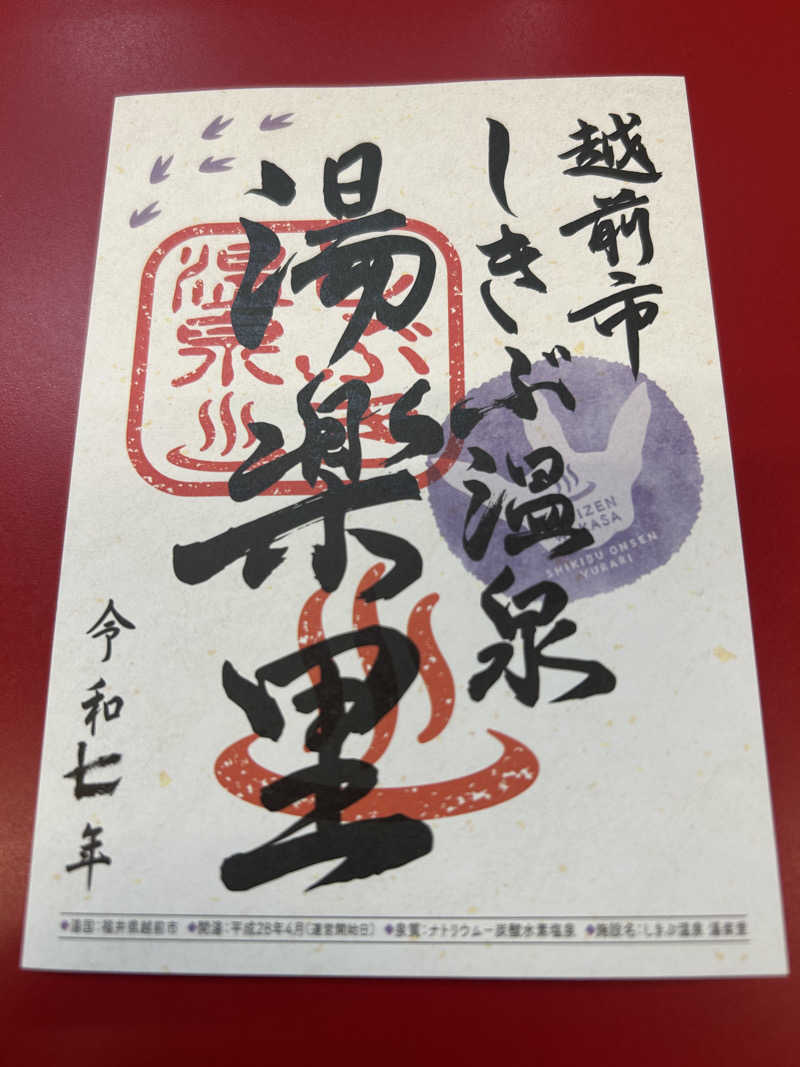 越前市
しきぶ温泉
湯楽里
令和七年
温泉
SHIKIBU ONSEN
YURARI
◆湯国:福井県越前市 ◆開湯:平成28年4月(運営開始日) ◆泉質:ナトリウムー炭酸水素塩泉 ◆施設名:しきぶ温泉 湯楽里